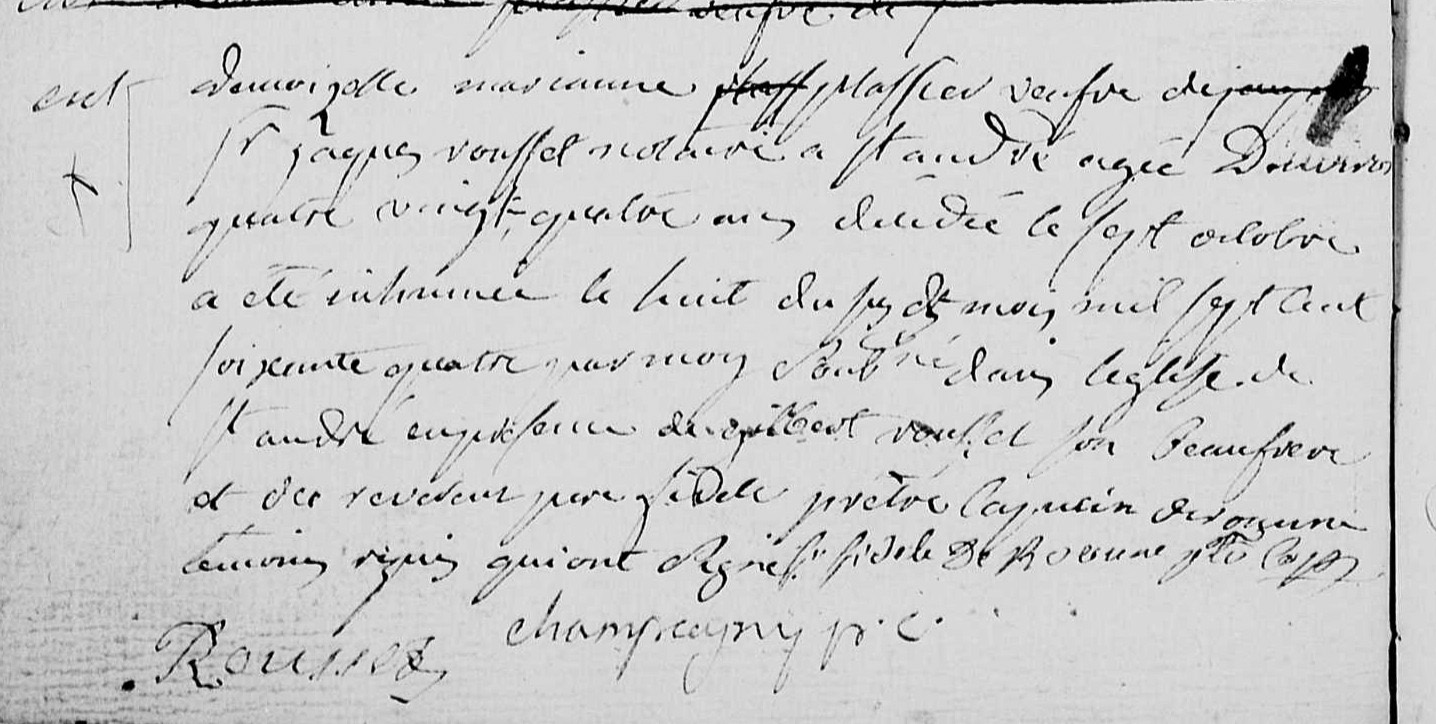 veufve de
demoizelle marianne plassier veufve de
Sr jaques roussel notaire a St andré agée Denviron
quatre vingt quatre ans décédée le sept octobre
a été inhumée le huit du sus dt mois mil sept cent
soixante quatre par moy soubné dans leglise de
St andré en presence de gilbert roussel son beaufrere
et du reverent pere fidele prêtre Capucin de roanne
temoins requis qui ont signé fr fidele De Roanne ptre cap
Champragny p. c.
Rousset